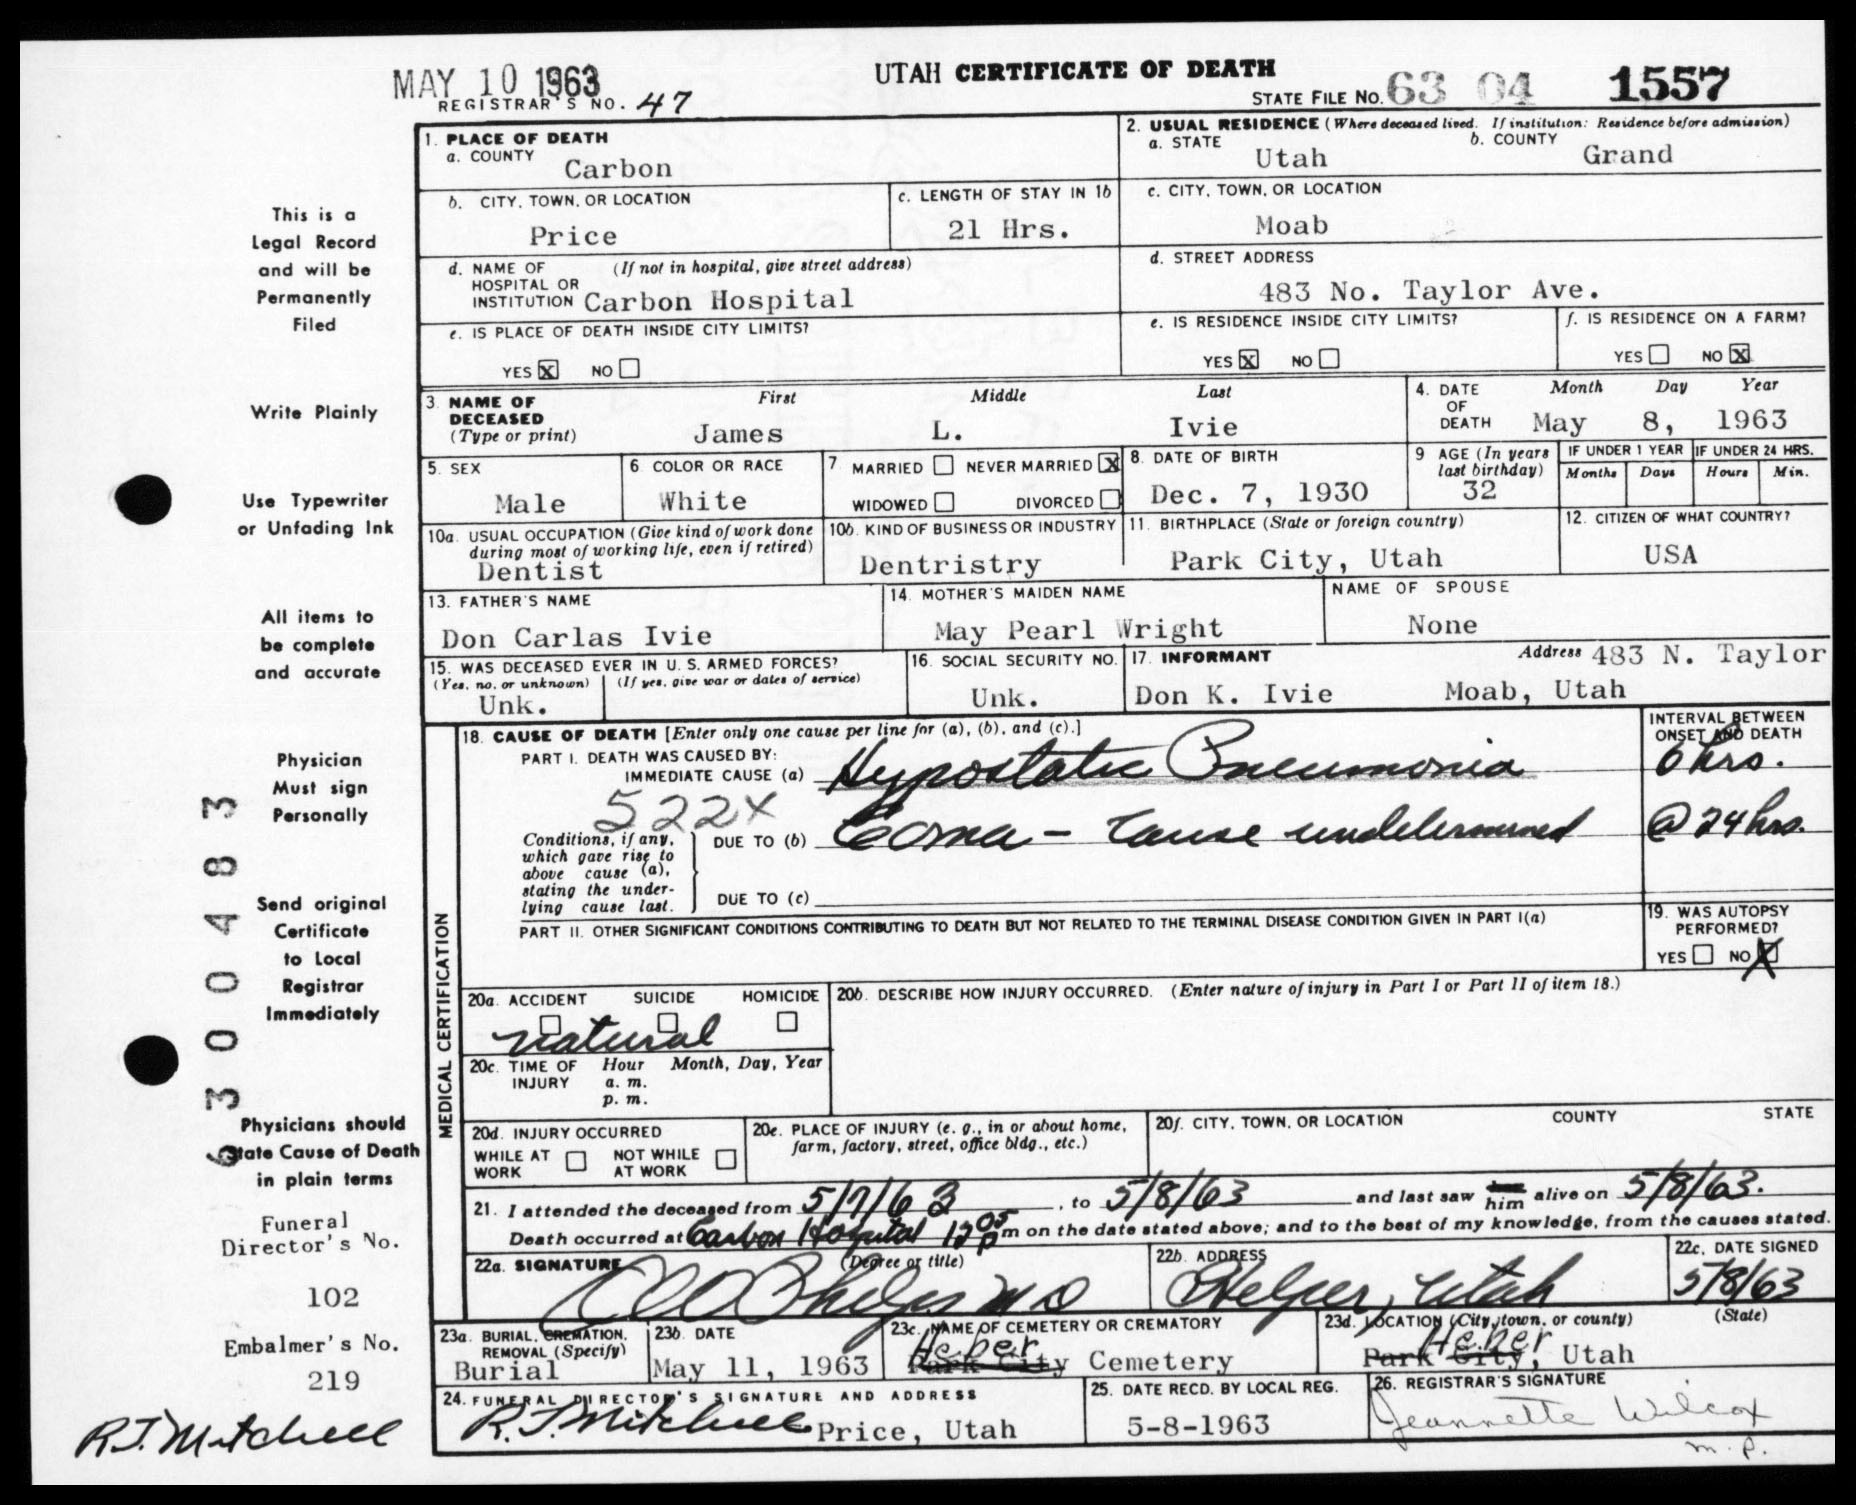 MAY 10 1963
UTAH CERTIFICATE OF DEATH
REGISTRAR'S NO. 47
STATE FILE NO. 63 04 1557
1. PLACE OF DEATH
a. COUNTY
Carbon
2. USUAL RESIDENCE (Where deceased lived. If institution: Residence before admission)
a. STATE
Utah
b. COUNTY
Grand
b. CITY, TOWN, OR LOCATION
Price
c. LENGTH OF STAY IN 1b
21 Hrs.
c. CITY, TOWN, OR LOCATION
Moab
d. NAME OF (If not in hospital, give street address)
HOSPITAL OR
INSTITUTION Carbon Hospital
d. STREET ADDRESS
483 No. Taylor Ave.
e. IS PLACE OF DEATH INSIDE CITY LIMITS?
YES X NO
e. IS RESIDENCE INSIDE CITY LIMITS?
YES X NO
f. IS RESIDENCE ON A FARM?
YES NO X
3. NAME OF
DECEASED
(Type or print)
First
James
Middle
L.
Last
Ivie
4. DATE
OF
DEATH
Month Day Year
May 8, 1963
5. SEX
Male
6 COLOR OR RACE
White
7 MARRIED NEVER MARRIED X
WIDOWED DIVORCED
8. DATE OF BIRTH
Dec. 7, 1930
9 AGE (In years
last birthday)
32
IF UNDER 1 YEAR
Months Days
IF UNDER 24 HRS.
Hours Min.
10a. USUAL OCCUPATION (Give kind of work done
during most of working life, even if retired)
Dentist
10b. KIND OF BUSINESS OR INDUSTRY
Dentristry
11. BIRTHPLACE (State or foreign country)
Park City, Utah
12. CITIZEN OF WHAT COUNTRY?
USA
13. FATHER'S NAME
Don Carlas Ivie
14. MOTHER'S MAIDEN NAME
May Pearl Wright
NAME OF SPOUSE
None
15. WAS DECEASED EVER IN U. S. ARMED FORCES?
(Yes, no, or unknown) (If yes, give war or dates of service)
Unk.
16. SOCIAL SECURITY NO.
Unk.
17. INFORMANT
Don K. Ivie
Address 483 N. Taylor
Moab, Utah
18. CAUSE OF DEATH [Enter only one cause per line for (a), (b), and (c).]
PART I. DEATH WAS CAUSED BY:
IMMEDIATE CAUSE (a) Hypostatic Pneumonia
INTERVAL BETWEEN
ONSET AND DEATH
6 hrs.
522X
Conditions, if any,
which gave rise to
above cause (a),
stating the under-
lying cause last.
DUE TO (b) Coma - cause undetermined
@ 24 hrs.
DUE TO (c)
PART II. OTHER SIGNIFICANT CONDITIONS CONTRIBUTING TO DEATH BUT NOT RELATED TO THE TERMINAL DISEASE CONDITION GIVEN IN PART I(a)
19. WAS AUTOPSY
PERFORMED?
YES NO X
MEDICAL CERTIFICATION
20a. ACCIDENT SUICIDE HOMICIDE
natural
20b. DESCRIBE HOW INJURY OCCURRED. (Enter nature of injury in Part I or Part II of item 18.)
20c. TIME OF Hour Month, Day, Year
INJURY a. m.
p. m.
20d. INJURY OCCURRED
WHILE AT
WORK
NOT WHILE
AT WORK
20e. PLACE OF INJURY (e. g., in or about home,
farm, factory, street, office bldg., etc.)
20f. CITY, TOWN, OR LOCATION COUNTY STATE
21. I attended the deceased from 5/7/63, to 5/8/63 and last saw him alive on 5/8/63.
Death occurred at Carbon Hospital 12 05 p m on the date stated above; and to the best of my knowledge, from the causes stated.
22a. SIGNATURE (Degree or title)
Phelps MD
22b. ADDRESS
Helper, Utah
22c. DATE SIGNED
5/8/63
23a. BURIAL, CREMATION,
REMOVAL (Specify)
Burial
23b. DATE
May 11, 1963
23c. NAME OF CEMETERY OR CREMATORY
Heber
Park City Cemetery
23d. LOCATION (City, town, or county) (State)
Heber
Park City, Utah
24. FUNERAL DIRECTOR'S SIGNATURE AND ADDRESS
R.J. Mitchell Price, Utah
25. DATE RECD. BY LOCAL REG.
5-8-1963
26. REGISTRAR'S SIGNATURE
Jeannette Wilcox
m.p.
This is a
Legal Record
and will be
Permanently
Filed
Write Plainly
Use Typewriter
or Unfading Ink
All items to
be complete
and accurate
Physician
Must sign
Personally
Send original
Certificate
to Local
Registrar
Immediately
Physicians should
State Cause of Death
in plain terms
6300483
Funeral
Director's No.
102
Embalmer's No.
219
R.J. Mitchell